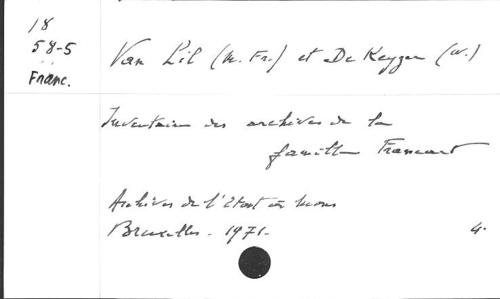 18
58-5
Franc.
Van L'il (M. Fr.) et De Keyzer (W.)
Inventaire des archives de la
famille Francart
Archives de l'Etat à Mons
Bruxelles - 1971.
4.